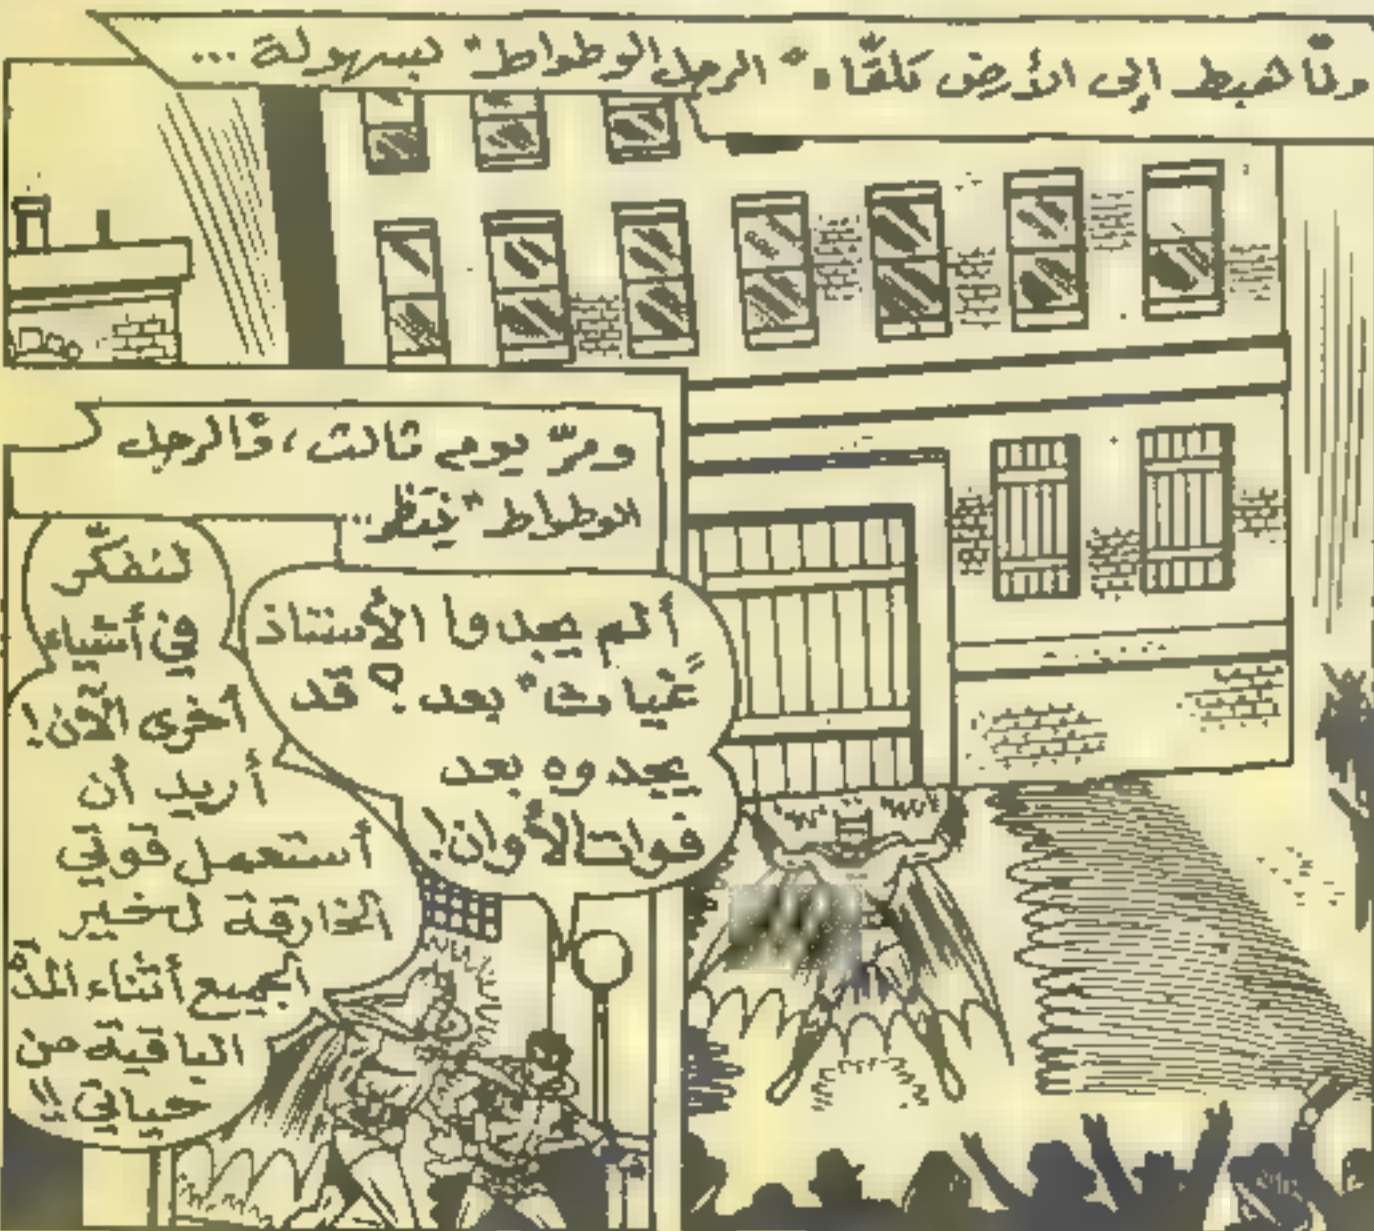 ولمّا هبط إلى الأرض تلقّاه "الرجل الوطواط" بسهولة ...
ومرّ يوم ثالث ، و"الرجل
الوطواط" ينتظر ...
ألم يجدوا الأستاذ
"غياث" بعد ؟ قد
يجدوه بعد
فوات الأوان !
لنفكّر
في أشياء
أخرى الآن !
أريد أن
أستعمل قوتي
الخارقة لخير
الجميع أثناء المدّة
الباقية من
حياتي !!